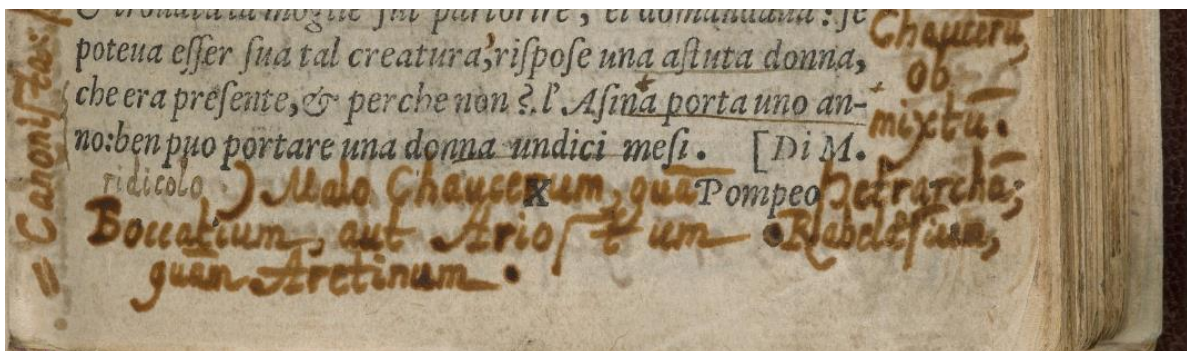 & trouata la moglie sul partorire, et domandaua: se
poteua esser sua tal creatura, rispose una astuta donna,
che era presente, & perche non ?. l' Asina porta uno an-
no: ben puo portare una donna undici mesi. [Di M.
ridicolo .) Malo Chaucerum, quā Pompeo Petrarchā;
X
Boccatium, aut Ariostum . Rabelæsium,
quàm Aretinum .
= Canonistas:
Chaucerū,
ob
mixtū.